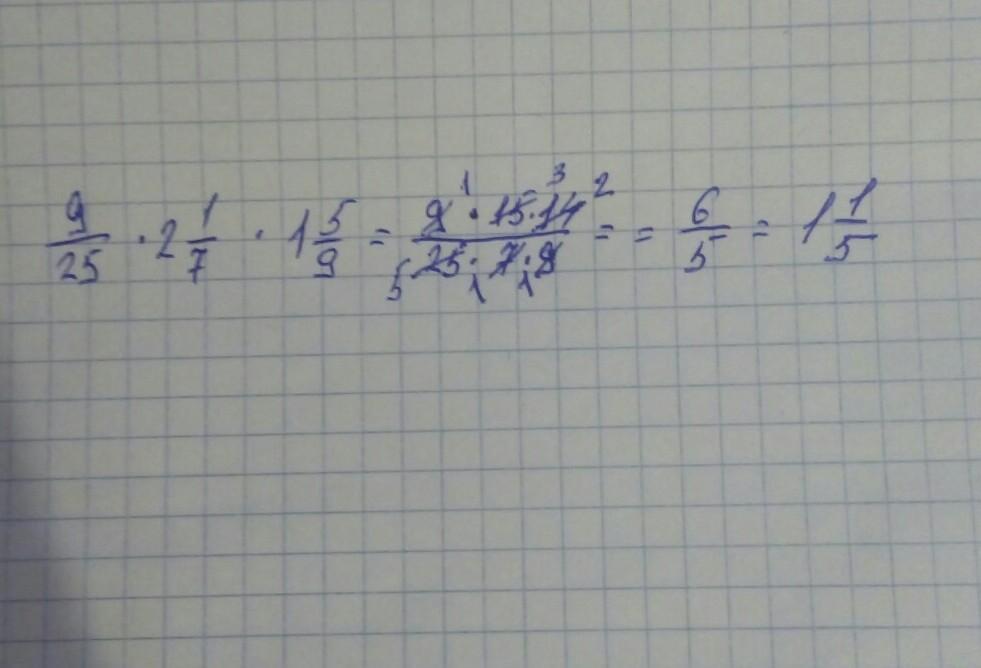 9/25 · 2 1/7 · 1 5/9 = 9 1 · 15 3 · 14 2 / 5 25 · 1 7 · 1 9 = = 6/5 = 1 1/5